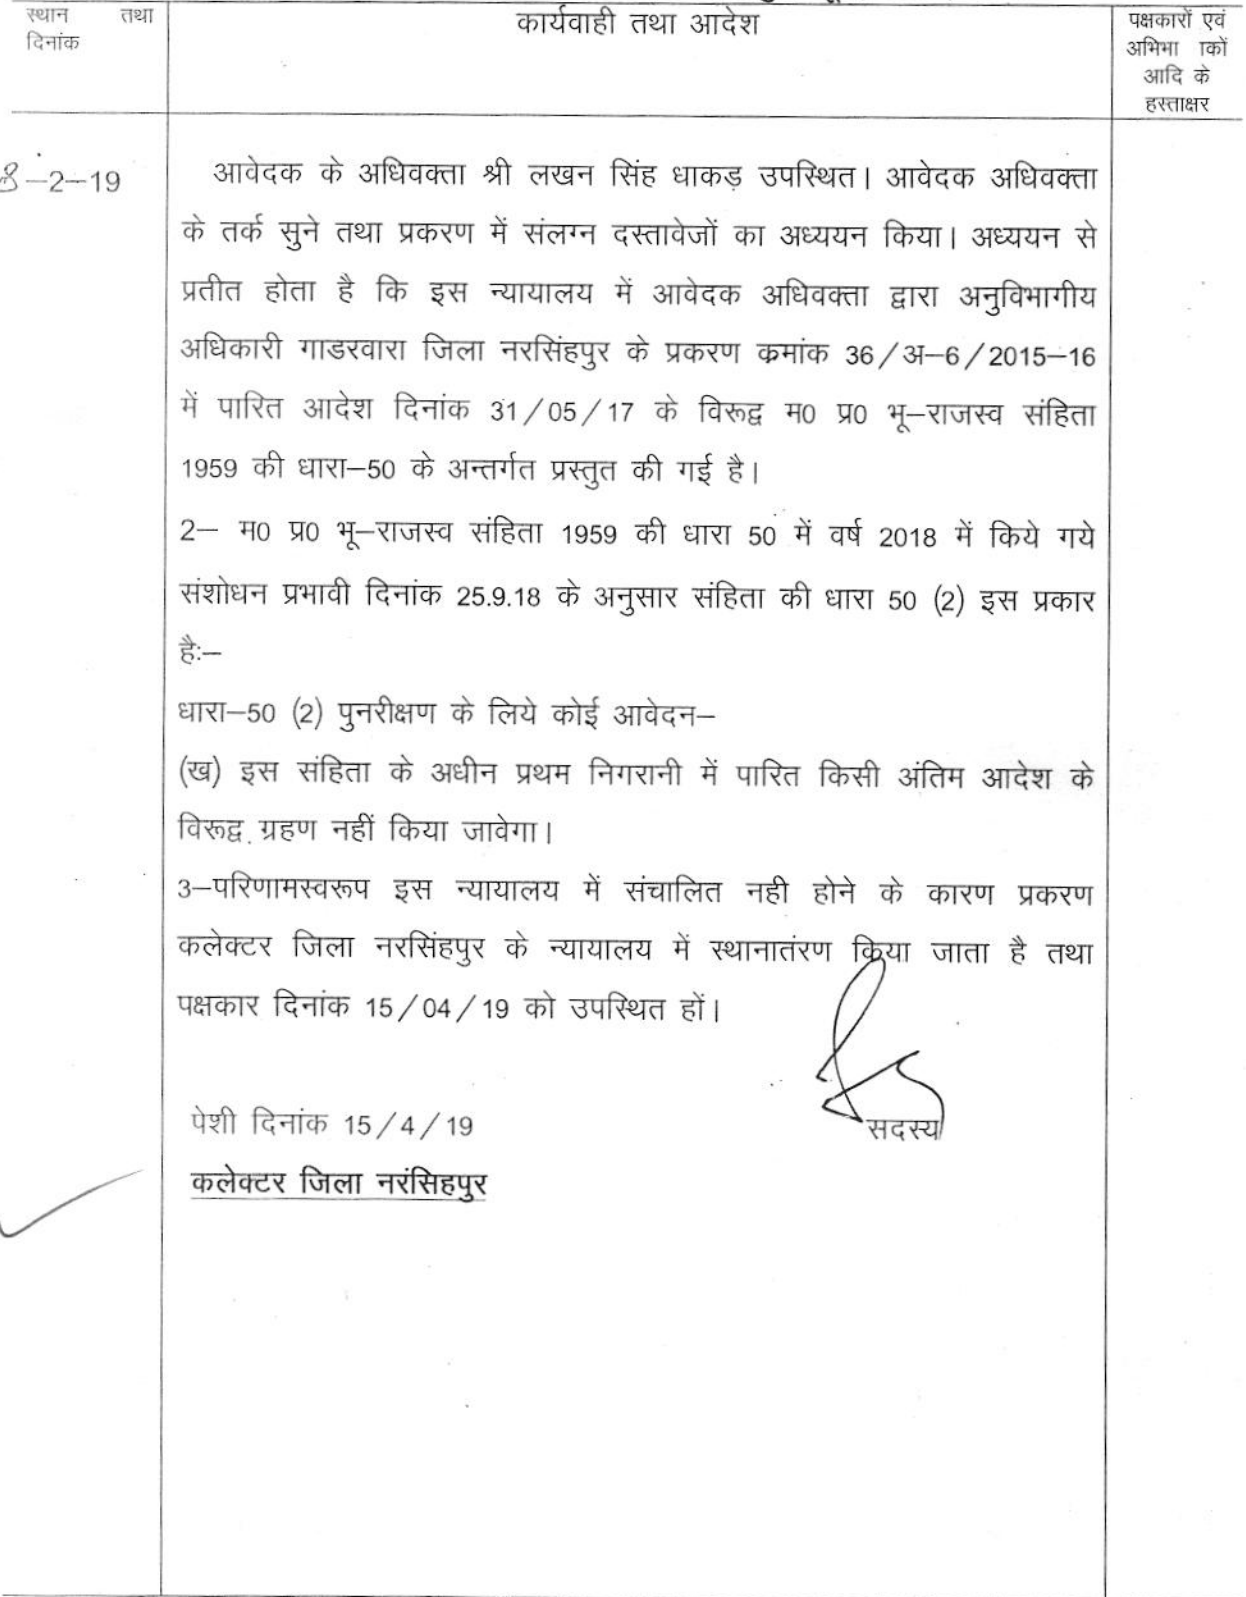 स्थान तथा
दिनांक
कार्यवाही तथा आदेश
पक्षकारों एवं
अभिभा कों
आदि के
हस्ताक्षर
8–2–19
आवेदक के अधिवक्ता श्री लखन सिंह धाकड़ उपस्थित। आवेदक अधिवक्ता
के तर्क सुने तथा प्रकरण में संलग्न दस्तावेजों का अध्ययन किया। अध्ययन से
प्रतीत होता है कि इस न्यायालय में आवेदक अधिवक्ता द्वारा अनुविभागीय
अधिकारी गाडरवारा जिला नरसिंहपुर के प्रकरण कमांक 36/अ–6/2015–16
में पारित आदेश दिनांक 31/05/17 के विरूद्व म0 प्र0 भू–राजस्व संहिता
1959 की धारा–50 के अन्तर्गत प्रस्तुत की गई है।
2– म0 प्र0 भू–राजस्व संहिता 1959 की धारा 50 में वर्ष 2018 में किये गये
संशोधन प्रभावी दिनांक 25.9.18 के अनुसार संहिता की धारा 50 (2) इस प्रकार
है:–
धारा–50 (2) पुनरीक्षण के लिये कोई आवेदन–
(ख) इस संहिता के अधीन प्रथम निगरानी में पारित किसी अंतिम आदेश के
विरूद्व ग्रहण नहीं किया जावेगा।
3–परिणामस्वरूप इस न्यायालय में संचालित नही होने के कारण प्रकरण
कलेक्टर जिला नरसिंहपुर के न्यायालय में स्थानातंरण किया जाता है तथा
पक्षकार दिनांक 15/04/19 को उपस्थित हों।
सदस्य
पेशी दिनांक 15/4/19
कलेक्टर जिला नरंसिहपुर